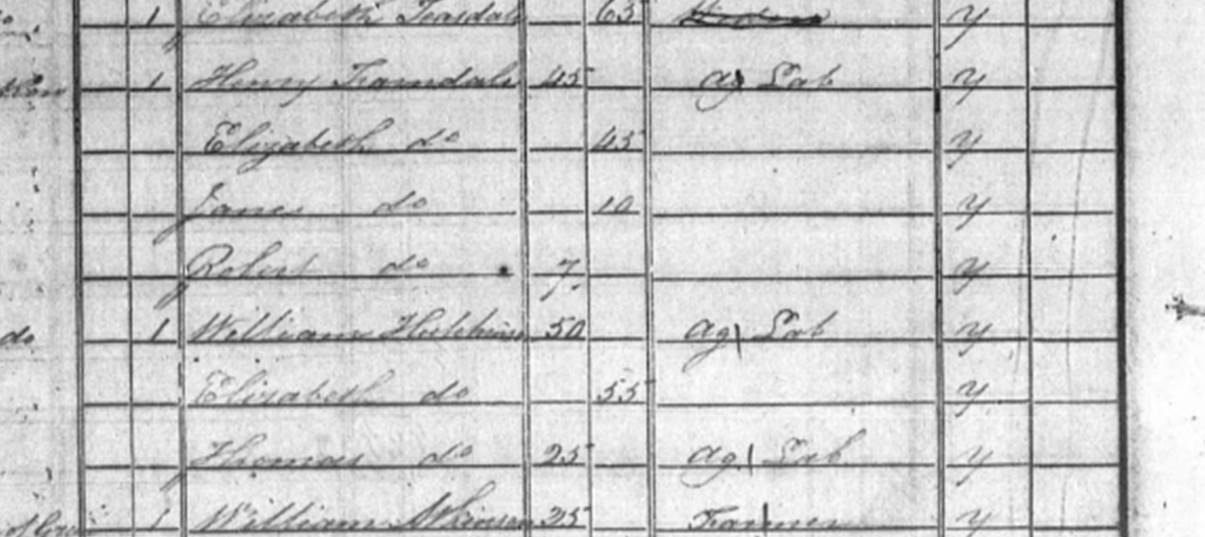 1 Elizabeth Teasdale 65 y
1 Henry Teasdale 45 Ag Lab y
Elizabeth do 45 y
Jane do 10 y
Robert do 7 y
do 1 William Hutchinson 50 Ag Lab y
Elizabeth do 55 y
Thomas do 25 Ag Lab y
1 William Atkinson 35 Farmer y